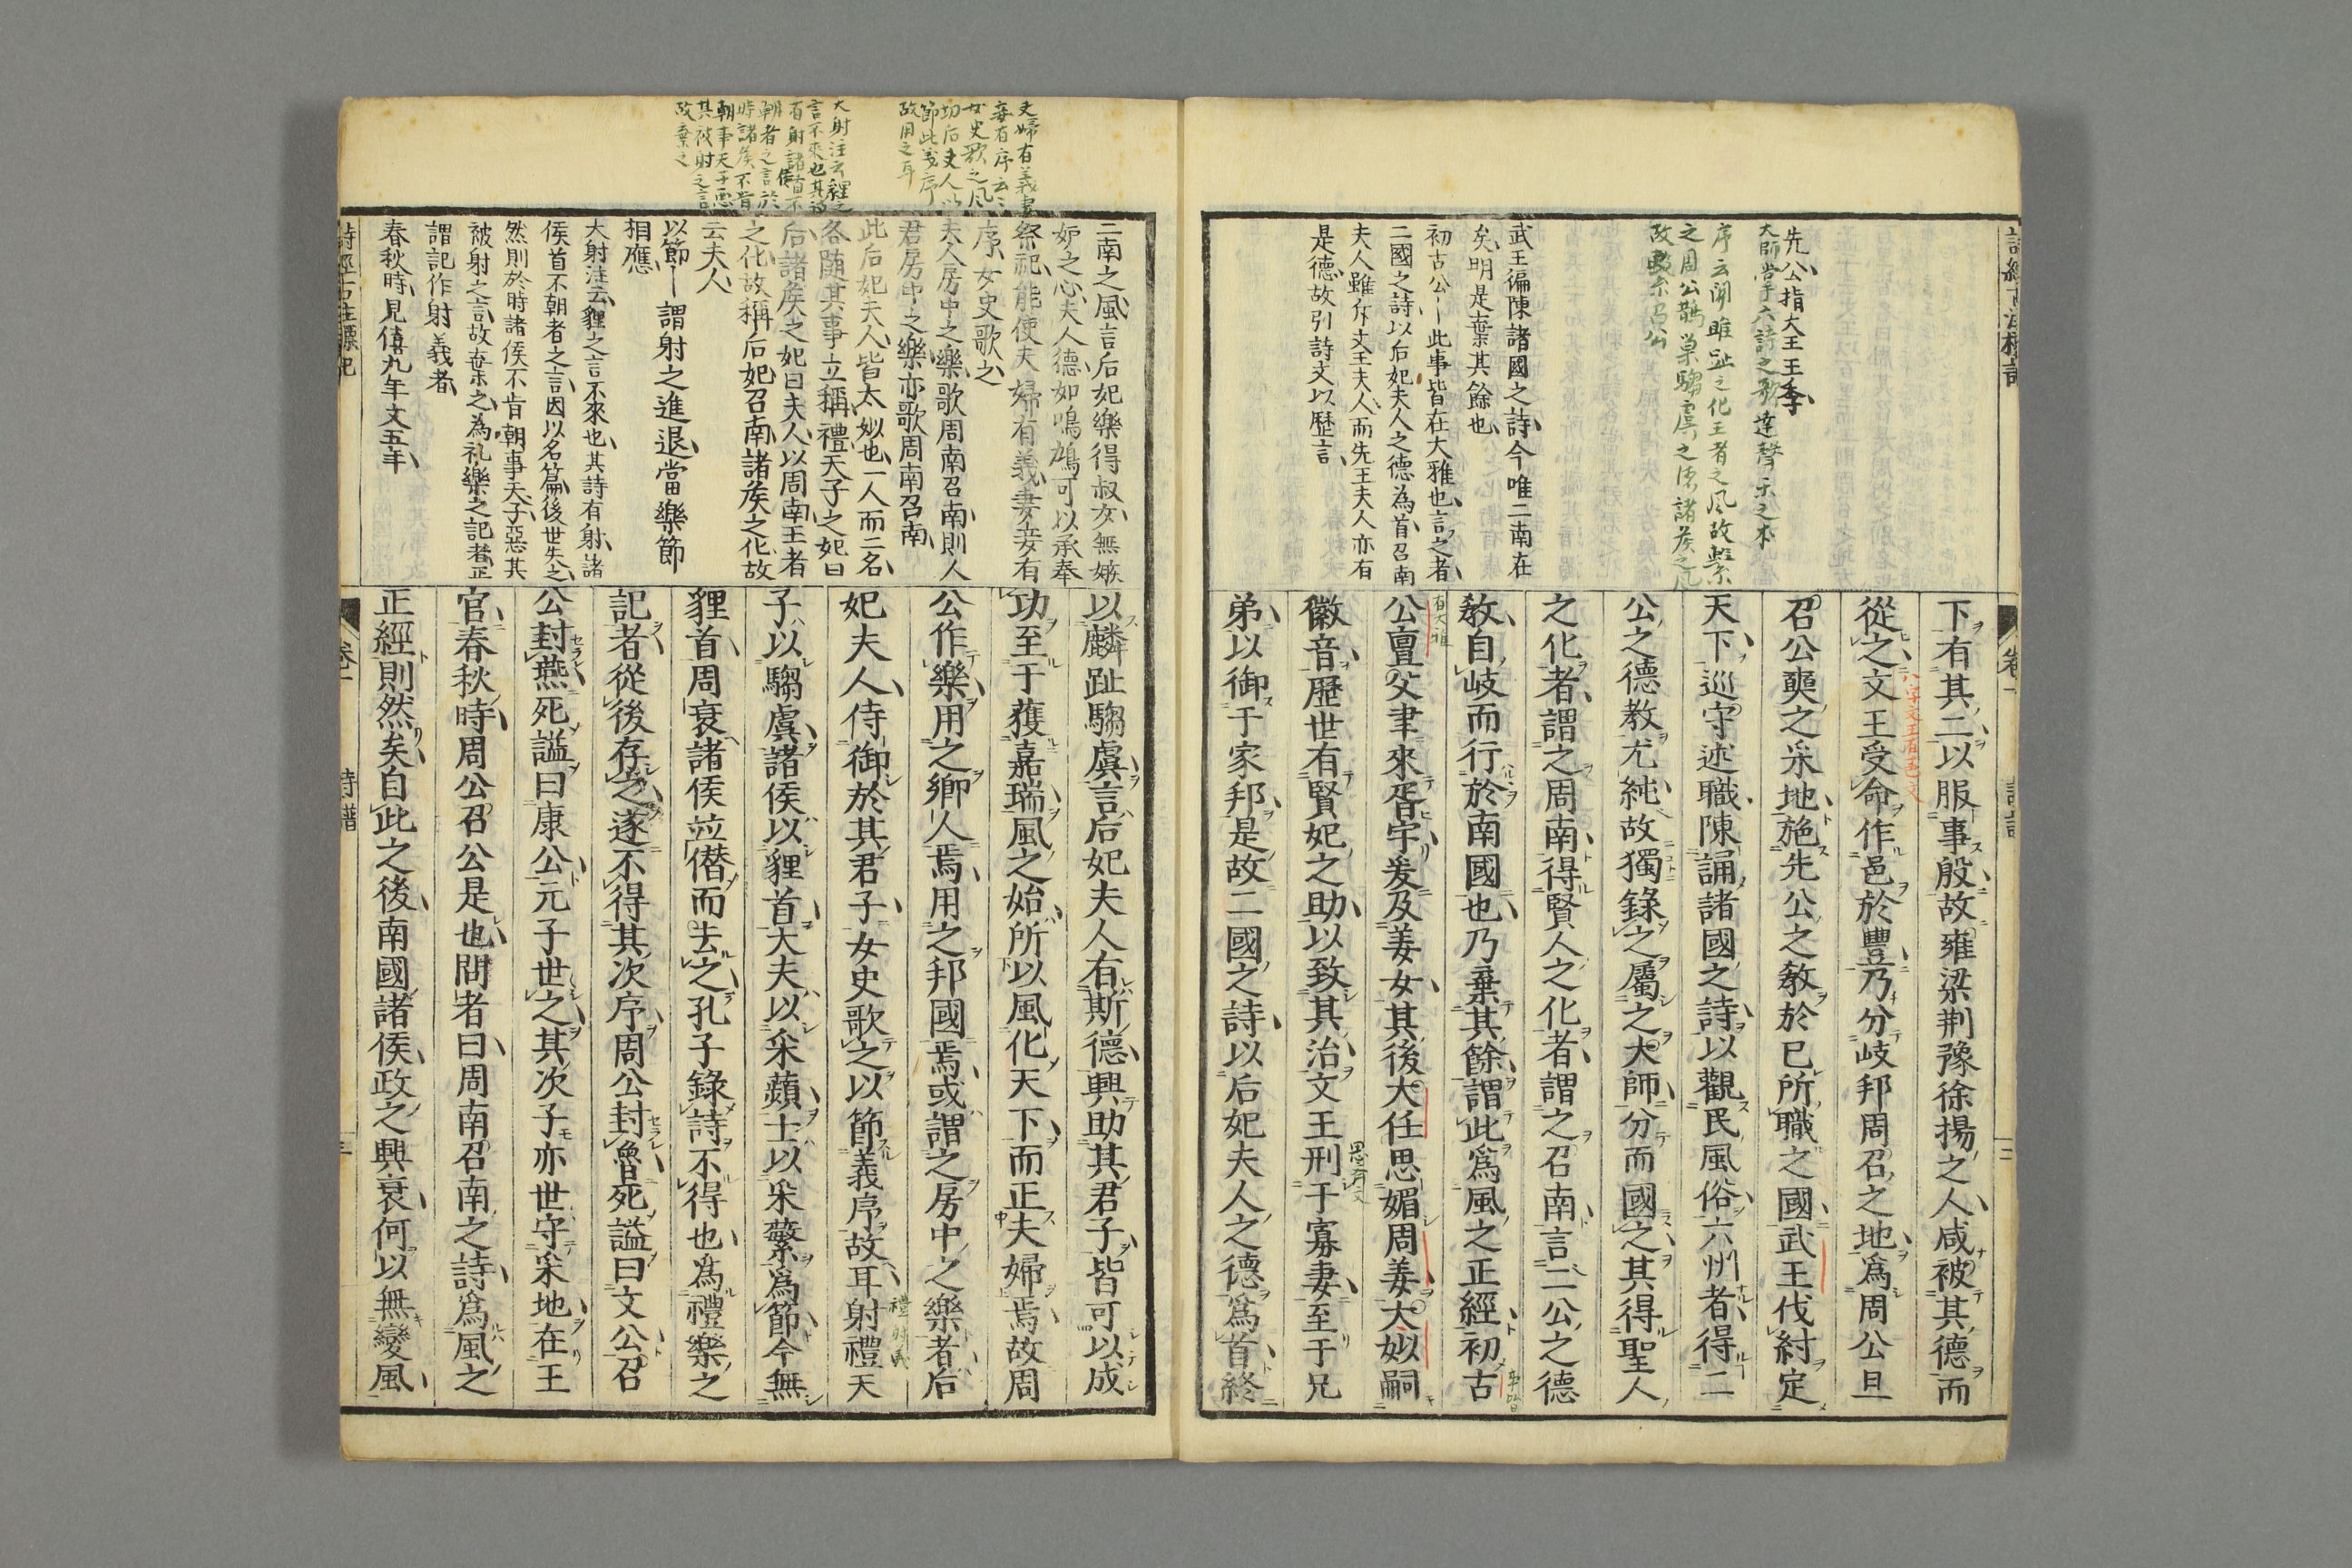 下有其二以服事殷故雍梁荆豫徐揚之人咸被其德而
從之文王受命作邑於豐乃分岐邦周召之地爲周公旦
召公奭之采地施先公之教於已所職之國武王伐紂定
天下巡守述職陳誦諸國之詩以觀民風俗六州者得二
公之德教尤純故獨錄之屬之大師分而國之其得聖人
之化者謂之周南得賢人之化者謂之召南言二公之德
教自岐而行於南國也乃棄其餘謂此爲風之正經初古
公亶父聿來胥宇爰及姜女其後大任思媚周姜大姒嗣
徽音歷世有賢妃之助以致其治文王刑于寡妻至于兄
弟以御于家邦是故二國之詩以后妃夫人之德爲首終
先公指大王王季
大師掌六詩之歌達聲示之本
序云關雎趾之化王者之風故繫
之周公鵲巢騶虞之德諸矦之風
故繫召公
武王徧陳諸國之詩今唯二南在
矣明是棄其餘也
初古公〡此事皆在大雅也言之者
二國之詩以后妃夫人之德為首召南
夫人雖斥文王夫人而先王夫人亦有
是德故引詩文以歷言
有大雅
思齊文
卷一
三
以麟趾騶虞言后妃夫人有斯德興助其君子皆可以成
功至于獲嘉瑞風之始所以風化天下而正夫婦焉故周
公作樂用之鄉人焉用之邦國焉或謂之房中之樂者后
妃夫人侍御於其君子女史歌之以節義序故耳射禮天
子以騶虞諸侯以貍首大夫以采蘋士以采蘩爲節今無
貍首周衰諸侯竝僭而去之孔子錄詩不得也爲禮樂之
記者從後存之遂不得其次序周公封魯死謚曰文公召
公封燕死謚曰康公元子世之其次子亦世守采地在王
官春秋時周公召公是也問者曰周南召南之詩爲風之
正經則然矣自此之後南國諸侯政之興衰何以無變風
二南之風言后妃樂得叔女無嫉
妒之心夫人德如鳴鳩可以承奉
祭祀能使夫婦有義妻妾有
序女史歌之
夫人房中之樂歌周南召南則人
君房中之樂亦歌周南召南
此后妃夫人皆太姒也一人而二名
各隨其事立稱禮天子之妃曰
后諸矦之妃曰夫人以周南王者
之化故稱后妃召南諸矦之化故
云夫人
以節〡謂射之進退當樂節
相應
大射注云貍之言不來也其詩有射諸
侯首不朝者之言因以名篇後世失之
然則於時諸侯不肯朝事天子惡其
被射之言故棄之為礼樂之記者正
謂記作射義者
春秋時見僖九年文五年
夫婦有義妻
妾有序云云
女史歌之風
切后夫人以
節此義序
故用之耳
大射注云貍之
言不來也其詩
有射諸侯首不
朝者之言於
時諸矦不肯
朝事天子惡
其被射之言
故棄之
禮射義
詩經古註標記
卷一
詩譜
三